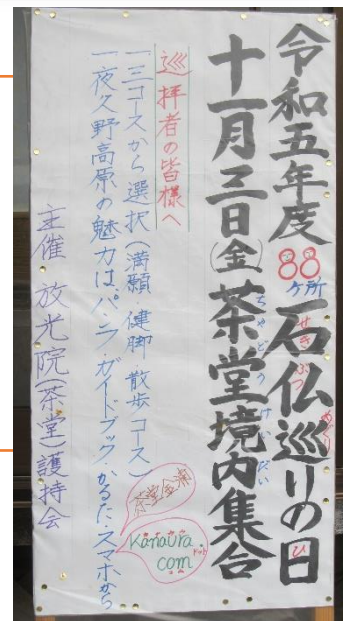 令和五年度88ヶ所石仏巡りの日
せきぶつめぐひ
十一月三日(金)茶堂境内集合
ちゃどうけいだい
巡拝者の皆様へ
一三コースから選択(満願 健脚 散歩コース)
一夜久野高原の魅力はパ・ラ・ガイドブック・かるた・スマホから
茶堂金浦
Kanaura.
com
ドット
主催 放光院(茶堂)護持会